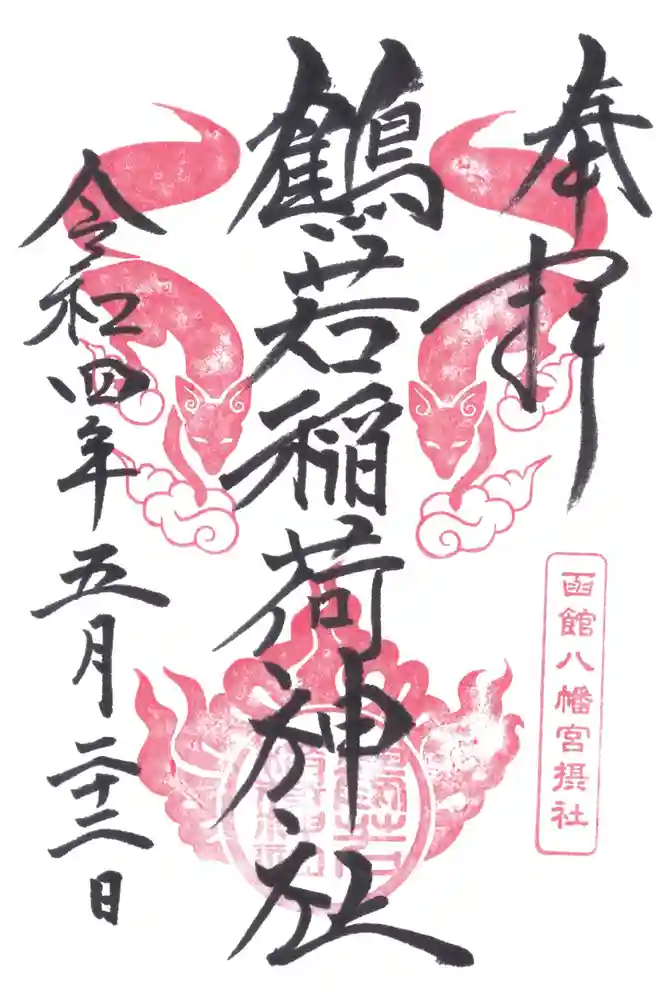 奉拝
函館八幡宮摂社
鶴若稲荷神社
令和四年五月二十三日